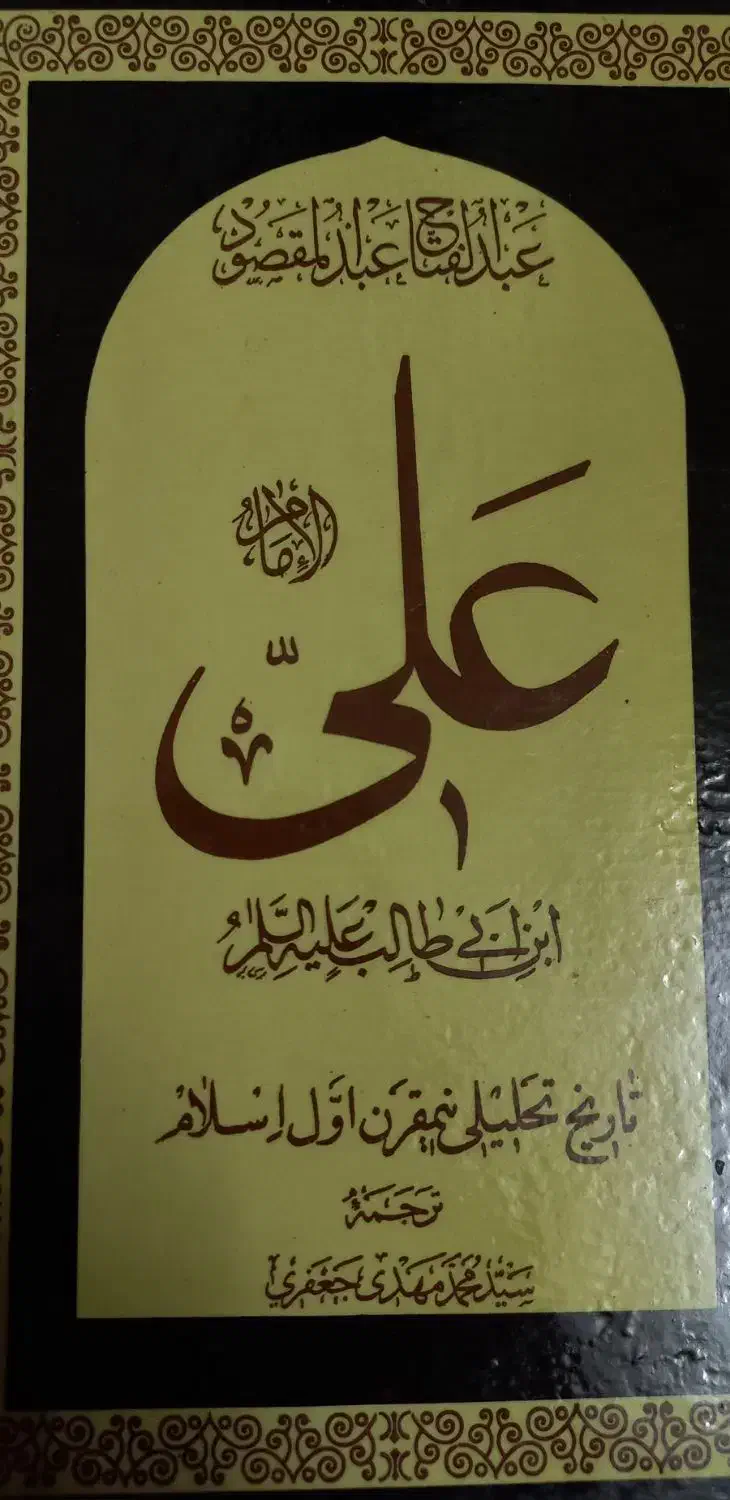 عَبدُالفَتّاح عَبدُالمَقصُود
الإمَام
عَلىّ
ابْنِ اَبي طَالِب عَلَيهِ السَّلامُ
تاریخ تحلیلی نیمقرن اوّل اسلام
ترجمهٔ
سَیّد محمّد مَهدی جَعفَری